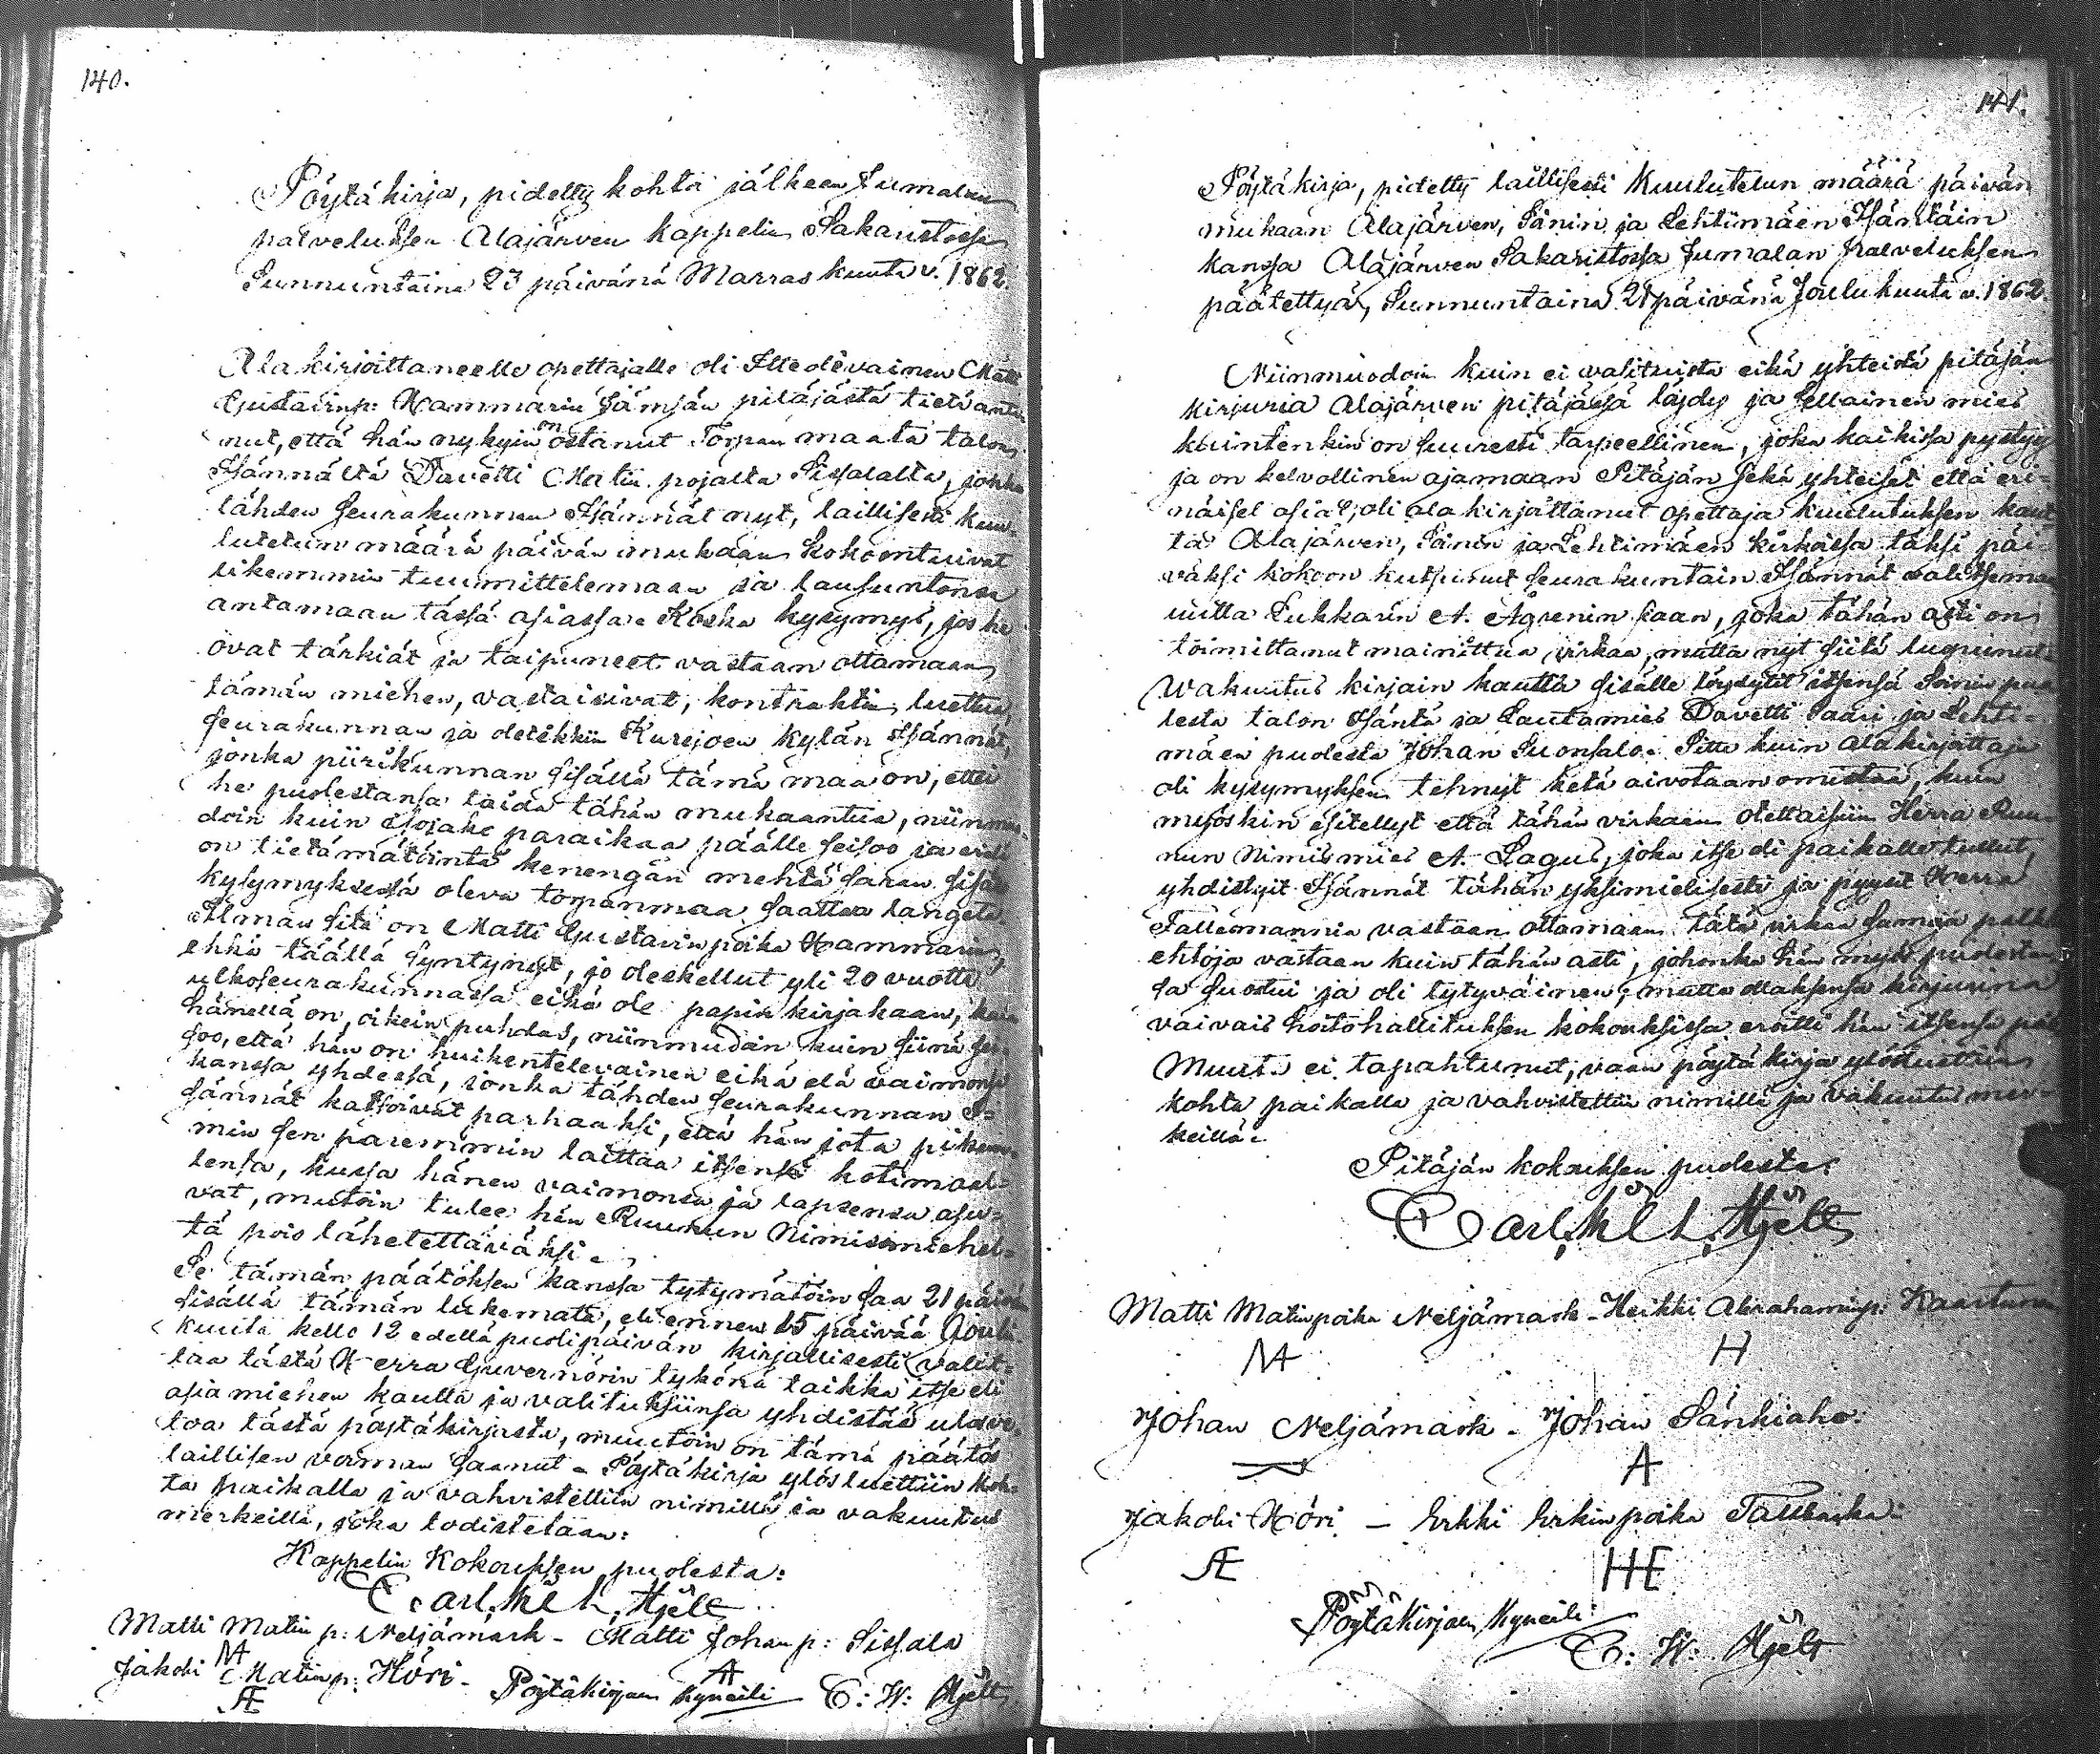 140.
Pöytäkirja, pidetty kohta jälkeen Jumalan
palveluksen Alajärven kappelin Sakaristossa
Sunnuntaina 23 päivänä Marraskuuta v. 1862.
Alakirjoittaneelle opettajalle oli Itteolevainen Matti
Gustavinp: Hammarin Jämsän pitäjästä tietä antanut
nut, että hän nykyin on ostanut Torpan maata talon
Isännältä Davetti Matin pojalta Sissalalta, jonka
tähden seurakunnan Isännät nyt, laillisesti kuu-
lutetun määrä päivän mukaan kokoontuivat
likemmin tuumittelemaan ja lausuntonsa
antamaan tässä asiassa. Koska kysymys, jos he
ovat tärkiät ja taipuneet vastaan ottamaan
tämän miehen, vastaisivat, kontrahtin luettua,
seurakunnan ja oletikkin Kurejoen kylän Isännät,
jonka piirikunnan sisällä tämä maa on, ettei
he puolestansa taida tähän mukaantua, niinmuo-
doin kuin Isojako paraikaa päälle seisoo ja vielä
on tietämätöintä kenengän mehtä saran sisään
kysymyksessä oleva torpanmaa saattaa langeta.
Ilman sitä on Matti Gustavin poika Hammarin,
ehkä täällä syntynyt, jo oleskellut yli 20 vuotta
ulkoseurakunnassa eikä ole papin kirjakaan, kuin
hänellä on, oikein puhdas, niinmuodoin kuin siinä sei-
soo, että hän on huikentelevainen eikä elä vaimonsa
kanssa yhdessä, jonka tähden seurakunnan I-
sännät katsoivat parhaaksi, että hän jota pikem-
min sen paremmin laittaa itsensä kotimaal-
lensa, kussa hänen vaimonsa ja lapsensa asu-
vat, mutoin tulee hän Ruunun Nimismiehel-
tä pois lähetettäväksi.
Se tämän päätöksen kanssa tytymätöin saa 21 päivän
sisällä tämän lukemata, eli ennen 15 päivää Joulu
kuuta kello 12 edellä puolipäivän kirjallisesti valit-
taa tästä Herra Guvernörin tykönä taikka itse eli
asiamiehen kautta ja valituksiinsa yhdistää ulosve-
toa tästä pöytäkirjasta, muutoin on tämä päätös
laillisen voiman saanut. Pöytäkirja ylösluettiin koh-
ta paikalla ja vahvistettiin nimillä ja vakuutus
merkeillä, joka todistetaan:
Kappelin Kokouksen puolesta:
Carl. Wilh. Hjelt
Matti Matin p: Neljämark - Matti Johan p: Sissala
Jakobi Matin p: Höri - Pöytäkirjaan kyneili C: W: Hjelt
141.
Pöytäkirja, pidetty laillisesti Kuulutetun määrä päivän
mukaan Alajärven, Soinin ja Lehtimäen Isäntäin
kanssa Alajärven Sakaristossa Jumalan palveluksen
päätettyä, Sunnuntaina 21 päivänä Joulukuuta v. 1862.
Niinmuodoin kuin ei valituista eikä yhteistä pitäjän
kirjuria Alajärven pitäjässä löydy ja sellainen mies
kuintenkin on suuresti tarpeellinen, joka kaikissa pystyy
ja on kelvollinen ajamaan Pitäjän sekä yhteiset että eri-
näiset asiat, oli alakirjottanut opettaja kuulutuksen kaut-
ta Alajärven, Soinin ja Lehtimäen kirkoissa täksi päi-
väksi kokoon kutsunut seurakuntain Isännät valitsemaan
uutta Lukkarin A. Agrenin siaan, joka tähän asti on
toimittanut mainittua virkaa, mutta nyt siitä luopunut.
Wakuutus kirjain kautta sisälle töydytit itsensä Soinin puo-
lesta talon Isäntä ja Lautamies Davetti Saari ja Lehti-
mäen puolesta Johan Suonsalo. Sitte kuin alakirjottaja
oli kysymyksen tehnyt ketä aivotaan omistaa, kuin
myöskin esitellyt että tähän virkaan otettaisiin Herra Ruu-
nun Nimismies A. Lagus, joka itse oli paikalle tullut,
yhdistyit Isännät tähän yksimielisesti ja pyysit Herra
Fallesmannia vastaan ottamaan tätä virkaa samoja palkka
ehtoja vastaan kuin tähän asti, johonka hän myös puolestan-
sa suostui ja oli tytyväinen, mutta ollaksensa kirjurina
vaivais hoitohallituksen kokouksissa eroitti hän itsensä pois.
Muuta ei tapahtunut, vaan pöytäkirja ylösluettiin
kohta paikalla ja vahvistettiin nimillä ja vakuutus mer-
keillä.
Pitäjän kokouksen puolesta:
Carl. Wilh. Hjelt
Matti Matinpoika Neljämark - Heikki Abrahaminp: Kaartunen
Johan Neljämark - Johan Särkiaho.
A
Jakobi Höri - Erkki Erkinpoika Tallbacka.
HE
Pöytäkirjaan kyneili:
C: W: Hjelt